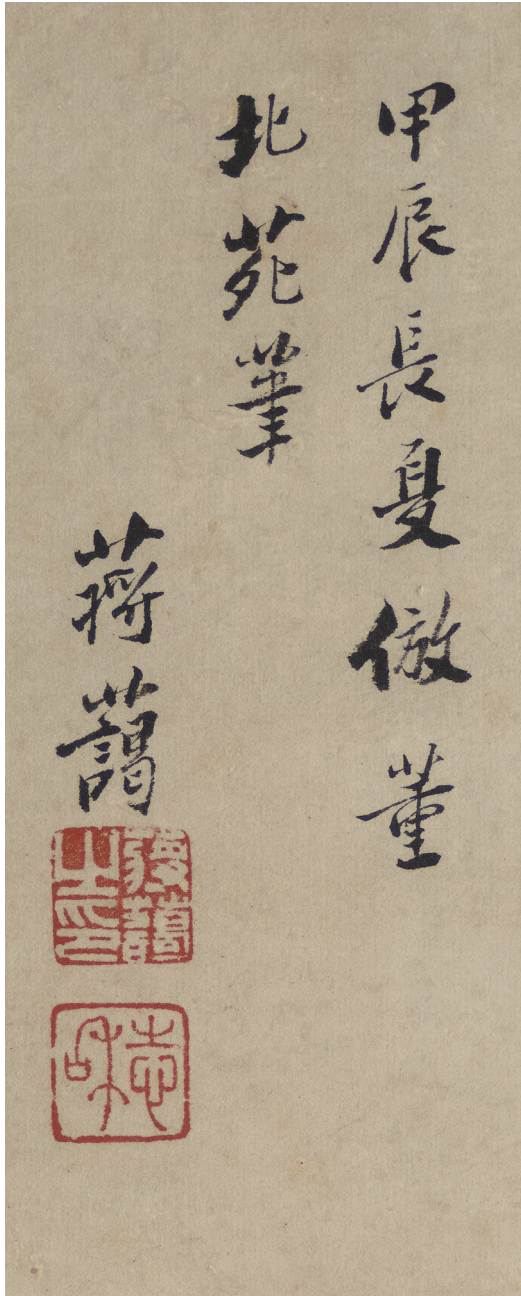 甲辰長夏倣董
北苑筆
蔣藹
蔣藹之印
志和